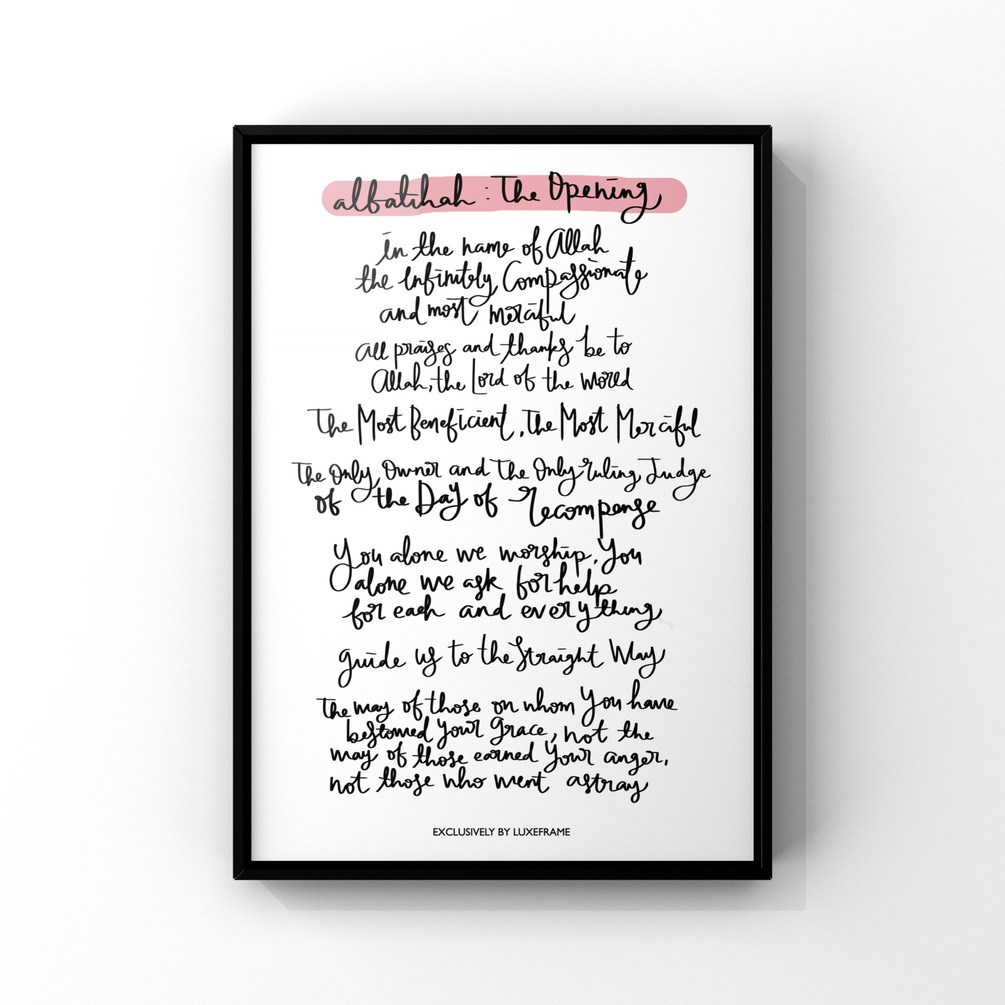 albatihah : The Opening
in the name of Allah
the Infinitely Compassionate
and most merciful
all praises and thanks be to
Allah, the Lord of the World
The Most Beneficient, The Most Merciful
The Only Owner and The Only ruling Judge
of the Day of Recompense
You alone we worship, You
alone we ask for help
for each and everything
guide us to the Straight Way
The way of those on whom You have
bestowed Your Grace, not the
way of those earned Your anger,
not those who went astray
EXCLUSIVELY BY LUXEFRAME